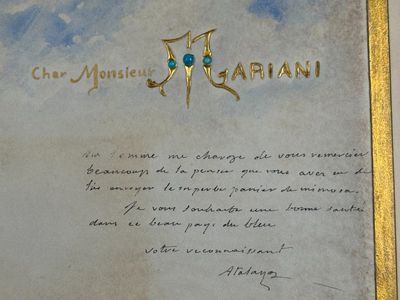 Cher Monsieur MARIANI
Ma femme me charge de vous remercier
beaucoup de la pensée que vous avez eu de
lui envoyer le superbe panier de mimosa.
Je vous souhaite une bonne santé
dans ce beau pays du bleu
votre reconnaissant
Atalaya